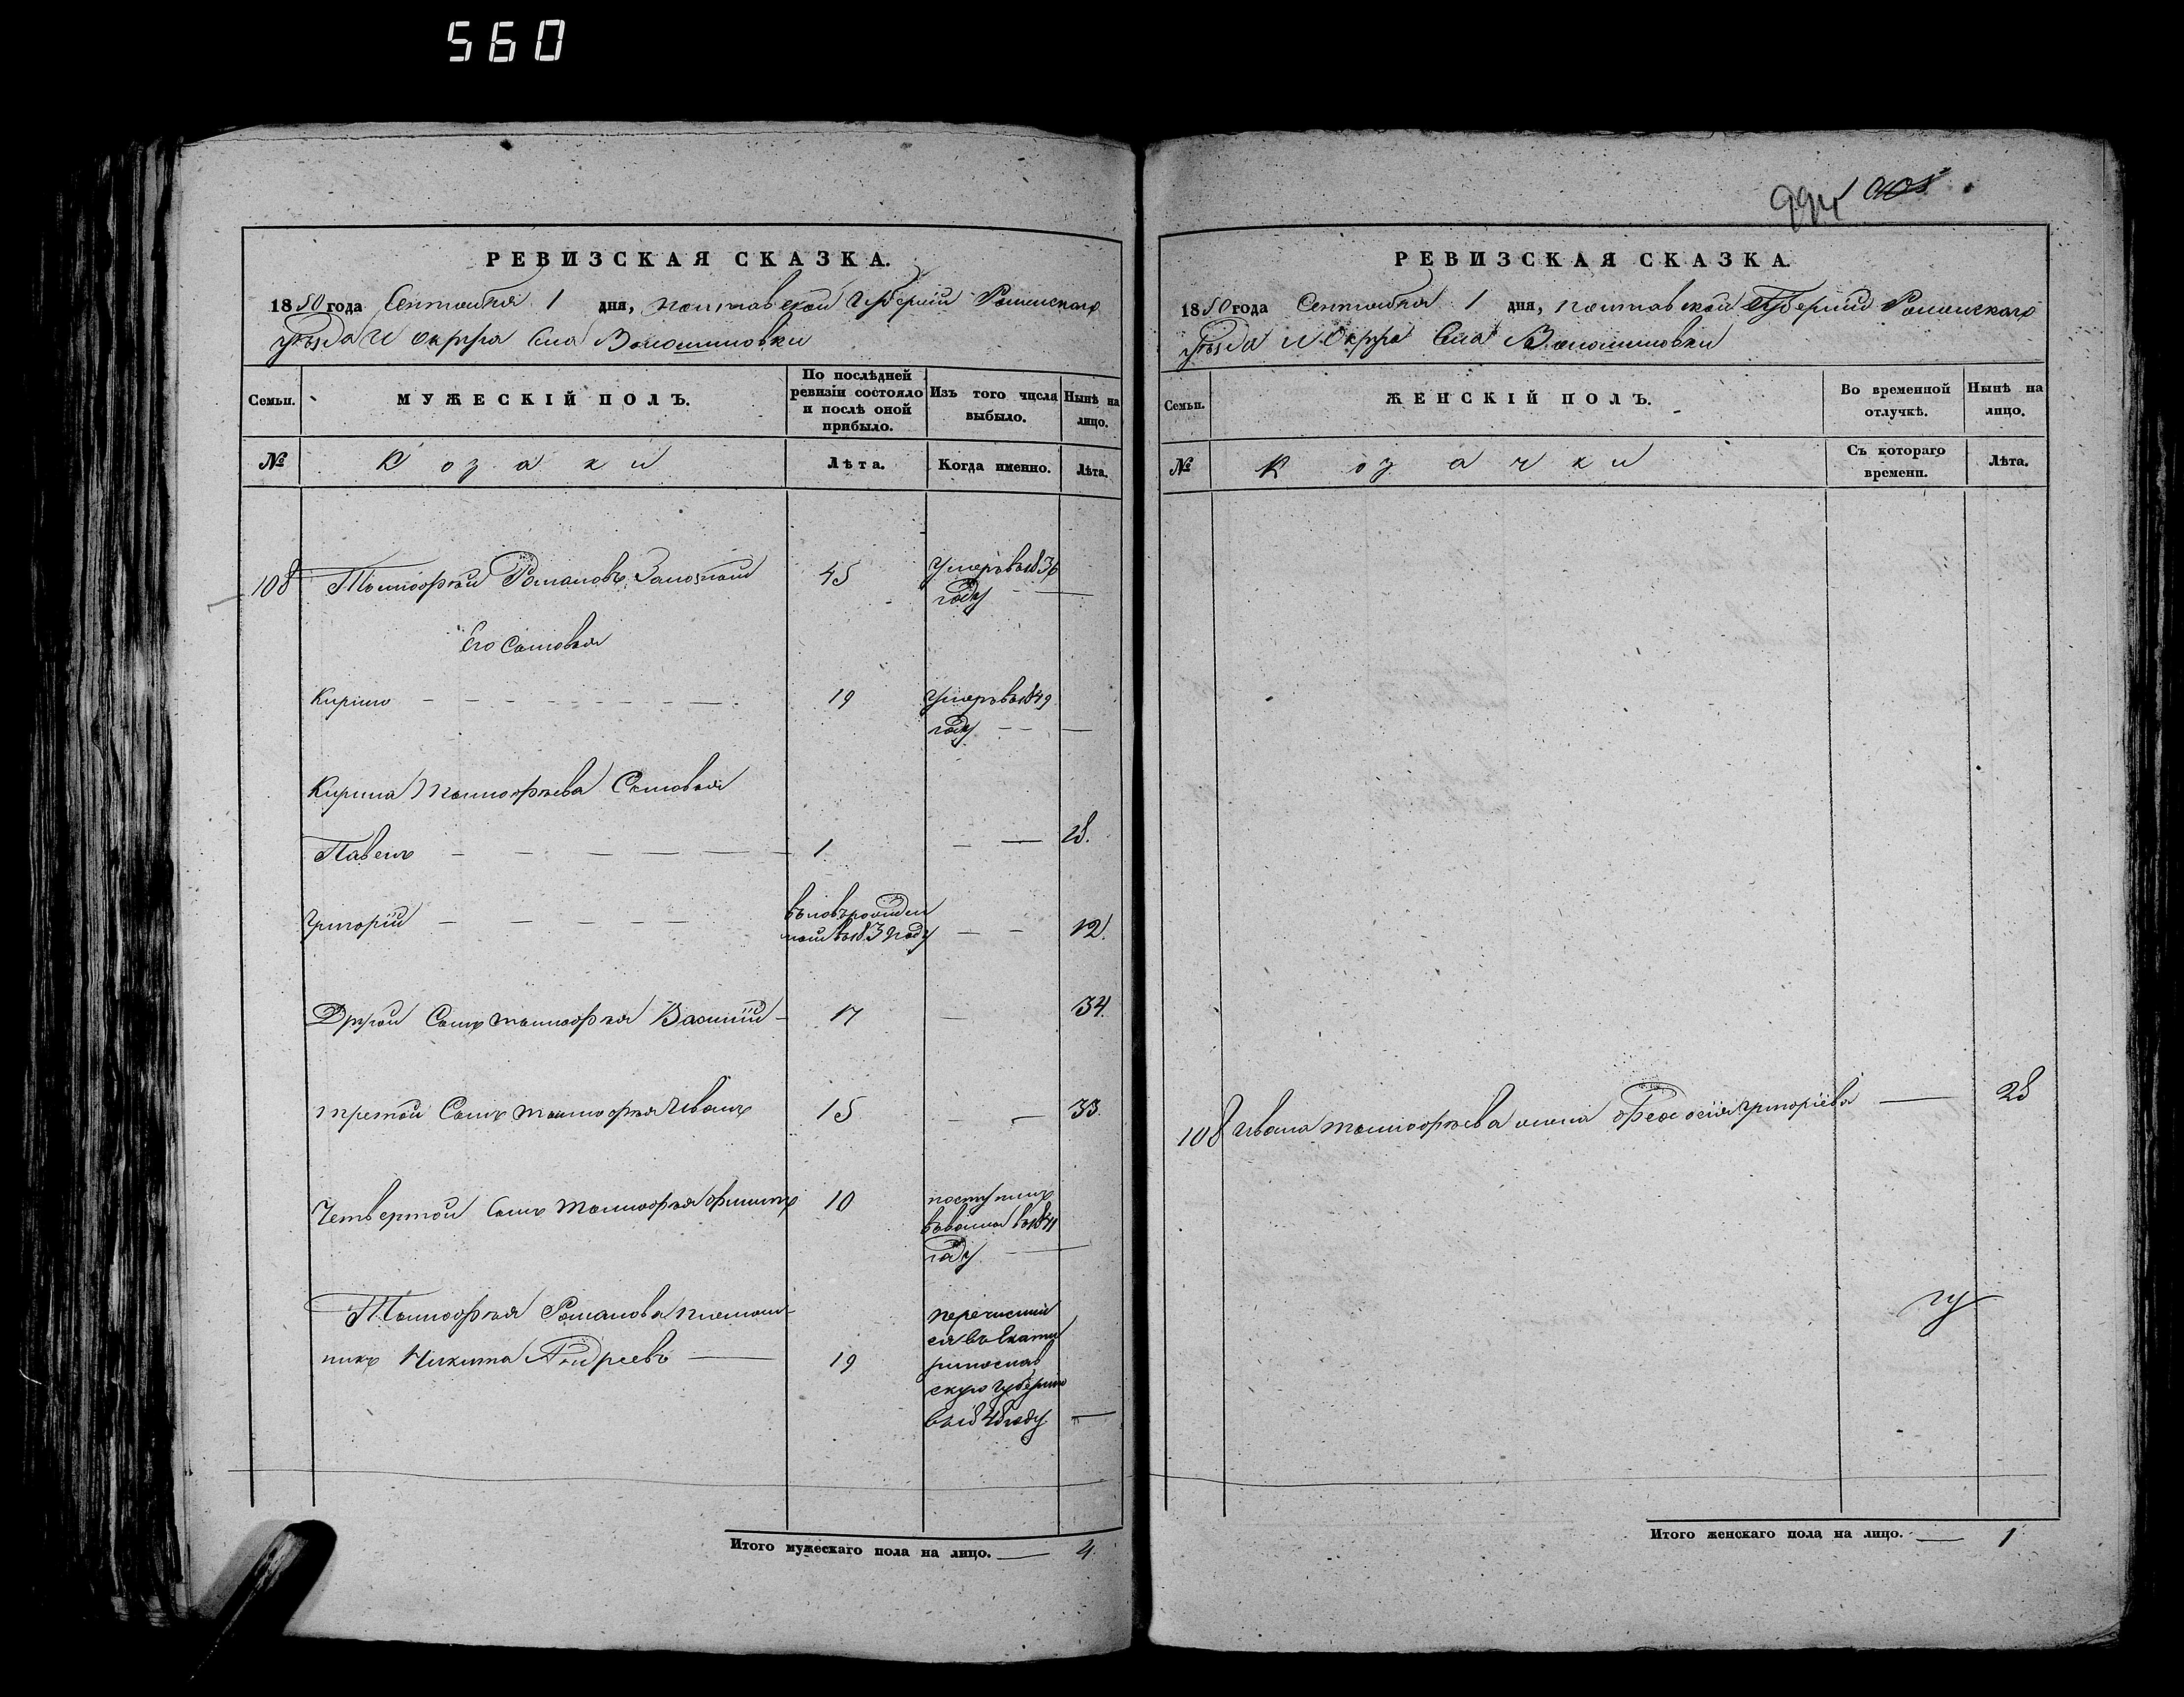 560
994
РЕВИЗСКАЯ СКАЗКА.
1850 года Сентября 1 дня, полтавской Губерніи Роменскаго
уѣзда и округа Села Волошиновки
Семьи. МУЖЕСКІЙ ПОЛЪ. По послѣдней ревизіи состояло и послѣ оной прибыло. Изъ того числа выбыло. Нынѣ на лицо.
№ Козаки Лѣта. Когда именно. Лѣта.
108 Тымофѣй Романовъ 45 Умеръ въ 1836
году —
Его Сыновья
Кирило 19 Умеръ въ 1849
году —
Кирила Тымофѣева Сыновья
Павелъ 1 — 28.
Григорій вновь рожден
ной въ 183 году — 12.
Другой Сынъ тымофѣя Василій 17 — 34.
третой Сынъ тымофѣя Иванъ 15 — 33.
Четвертой Сынъ тымофѣя филипъ 10 поступилъ
въ 1841
году —
Тымофѣя Романова племян
никъ Никита Андреевъ — 19 перечислил
ся въ Екате
ринослав
скую губернію
въ 184 году —
Итого мужескаго пола на лицо. — 4.
РЕВИЗСКАЯ СКАЗКА.
1850 года Сентября 1 дня, полтавской Губерніи Роменскаго
уѣзда и Округа Села Волошиновки
Семьи. ЖЕНСКІЙ ПОЛЪ. Во временной отлучкѣ. Нынѣ на лицо.
№ Козачки Съ котораго времени. Лѣта.
108 Ивана тымофѣева жена Феодосія григоріева — 28
Итого женскаго пола на лицо. — 1